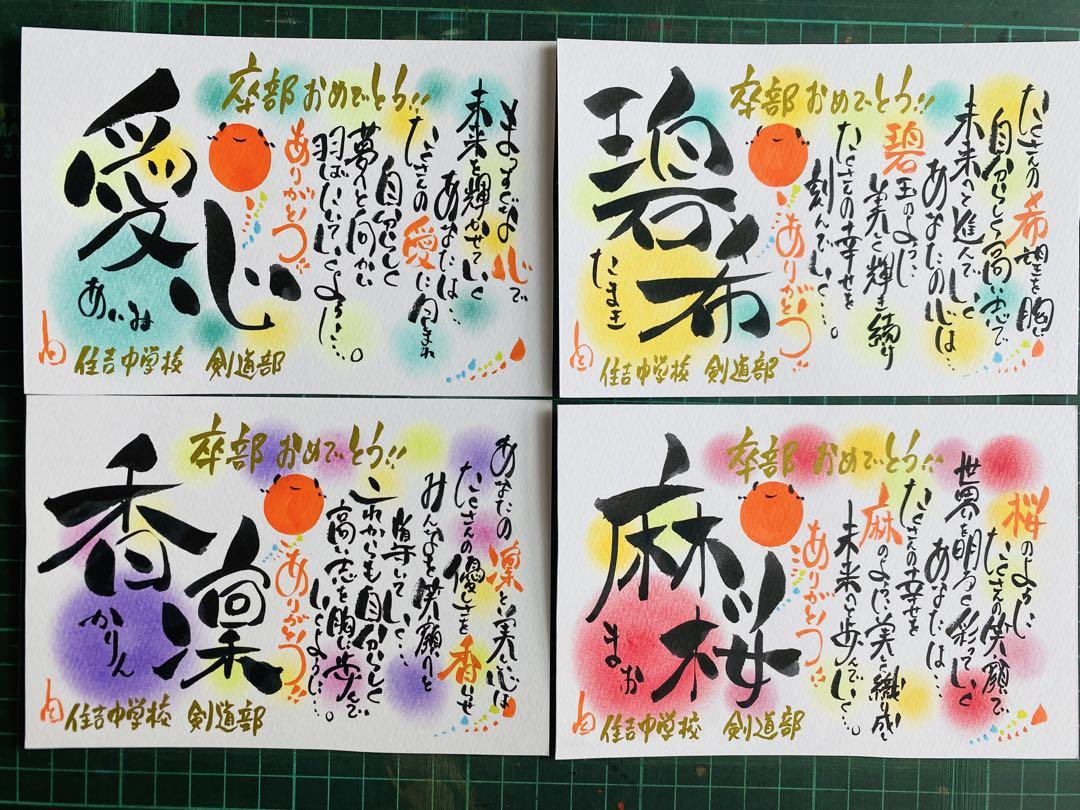 卒部おめでとう!!
愛心
あいみ
ありがとう
まっすぐな心で
未来を輝かせていく
あなたは…
たくさんの愛に包まれ
自分らしく
夢へと向かい
羽ばたいていくように…。
住吉中学校 剣道部
卒部おめでとう!!
碧希
たまき
ありがとう
たくさんの希望を胸に
自分らしく高い志で
未来へと進んでいく
あなたの心は…
碧玉のように
美しく輝き続け
たくさんの幸せを
刻んでいく…。
住吉中学校 剣道部
卒部おめでとう!!
香凜
かりん
ありがとう
あなたの凜と美しい心は
たくさんの優しさを香らせ
みんなを笑顔へと
導いていく…
これからも自分らしく
高い志を胸に歩んで
いくように…。
住吉中学校 剣道部
卒部おめでとう!!
麻桜
まお
ありがとう
桜のように
たくさんの笑顔で
世界を明るく彩っていく
あなたは…
たくさんの幸せを
麻のように美しく織り成し
未来へと歩んでいく…。
住吉中学校 剣道部